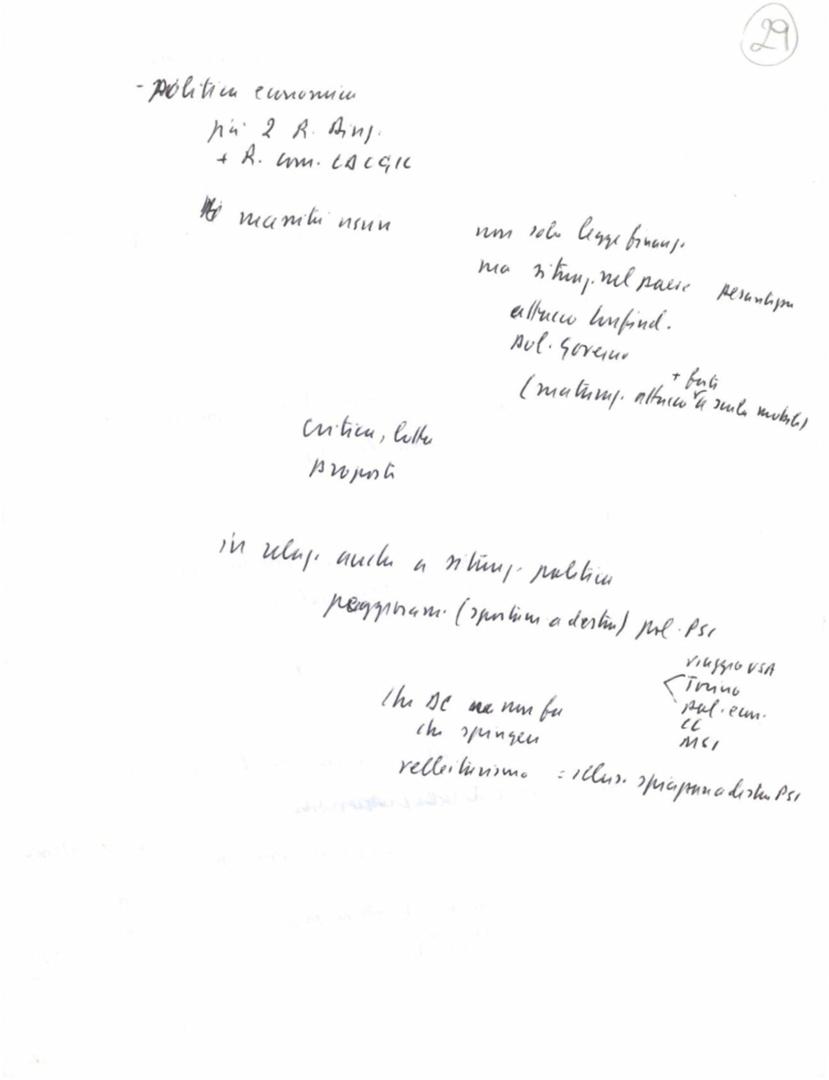 29
- politica economica
più 2 R. Bing.
+ R. com. CD CGIL
non solo legge finanz.
ma situaz. nel paese pesantiss
attacco Confind.
pol. Governo
+ forte
(mattonz. attacco a scala mobile)
critica, lotta
proposta
in relaz. anche a situaz. politica
peggioram. (spostam a destra) pol. PSI
viaggio USA
Torino
pol. econ.
CC
MSI
che DC non fa
che spingere
velleitarismo = illus. a destra PSI